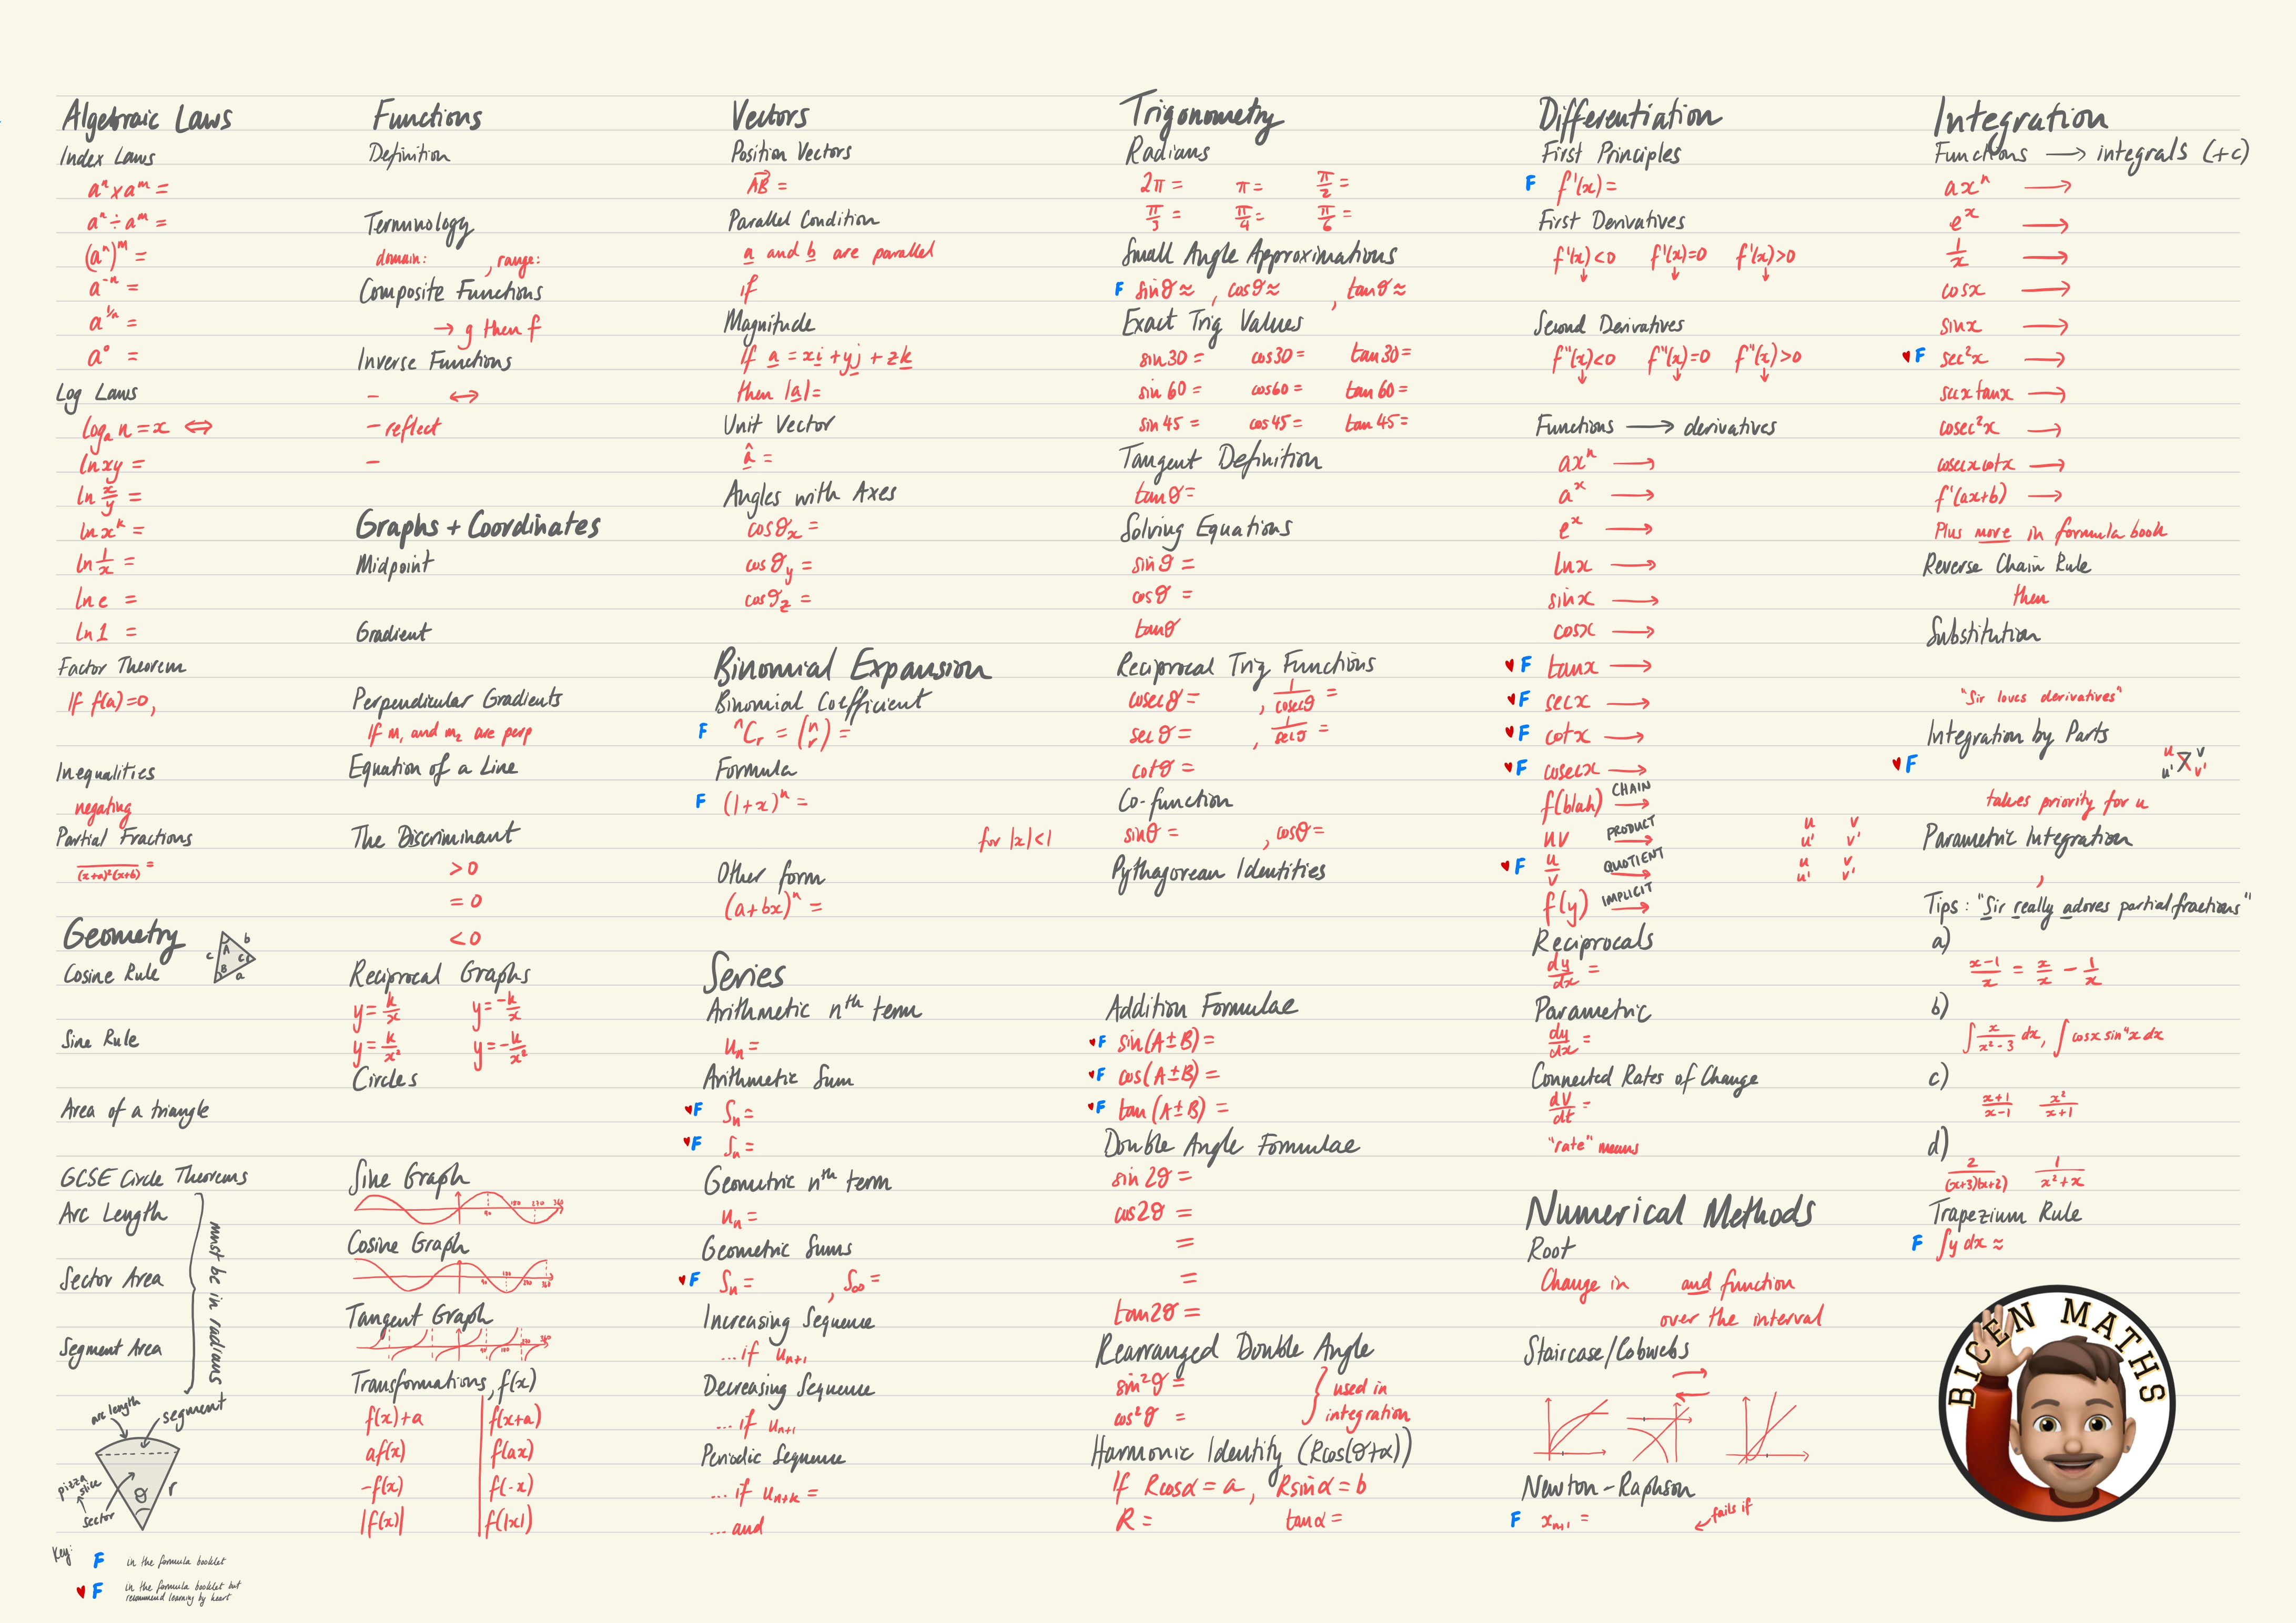 Algebraic Laws
Index Laws
aⁿ × aᵐ =
aⁿ ÷ aᵐ =
(aⁿ)ᵐ =
a⁻ⁿ =
a^(1/n) =
a⁰ =
Log Laws
logₐ n = x ⇔
ln xy =
ln x/y =
ln xᵏ =
ln 1/x =
ln e =
ln 1 =
Factor Theorem
If f(a)=0,
Inequalities
negating
Partial Fractions
/(x+a)²(x+b) =
Geometry
c A b
B C
a
Cosine Rule
Sine Rule
Area of a triangle
GCSE Circle Theorems
Arc Length
Sector Area
Segment Area
must be in radians
arc length
segment
pizza slice
sector
θ r
Key:
F in the formula booklet
♥F in the formula booklet but
recommend learning by heart
Functions
Definition
Terminology
domain: , range:
Composite Functions
→ g then f
Inverse Functions
- ⇔
- reflect
-
Graphs + Coordinates
Midpoint
Gradient
Perpendicular Gradients
If m₁ and m₂ are perp
Equation of a Line
The Discriminant
> 0
= 0
< 0
Reciprocal Graphs
y = k/x y = -k/x
y = k/x² y = -k/x²
Circles
Sine Graph
90 180 270 360
Cosine Graph
90 180 270 360
Tangent Graph
90 180 270 360
Transformations, f(x)
f(x)+a f(x+a)
af(x) f(ax)
-f(x) f(-x)
|f(x)| f(|x|)
Vectors
Position Vectors
AB =
Parallel Condition
a and b are parallel
if
Magnitude
If a = xi + yj + zk
then |a| =
Unit Vector
â =
Angles with Axes
cosθₓ =
cosθ_y =
cosθ_z =
Binomial Expansion
Binomial Coefficient
F ⁿCᵣ = (n r) =
Formula
F (1+x)ⁿ =
for |x|<1
Other form
(a+bx)ⁿ =
Series
Arithmetic nᵗʰ term
uₙ =
Arithmetic Sum
♥F Sₙ =
♥F Sₙ =
Geometric nᵗʰ term
uₙ =
Geometric Sums
♥F Sₙ = , S∞ =
Increasing Sequence
... if uₙ₊₁
Decreasing Sequence
... if uₙ₊₁
Periodic Sequence
... if uₙ₊ₖ =
... and
Trigonometry
Radians
2π = π = π/2 =
π/3 = π/4 = π/6 =
Small Angle Approximations
F sinθ ≈ , cosθ ≈ , tanθ ≈
Exact Trig Values
sin30 = cos30 = tan30 =
sin60 = cos60 = tan60 =
sin45 = cos45 = tan45 =
Tangent Definition
tanθ =
Solving Equations
sinθ =
cosθ =
tanθ
Reciprocal Trig Functions
cosecθ = , 1/cosecθ =
secθ = , 1/secθ =
cotθ =
Co-function
sinθ = , cosθ =
Pythagorean Identities
Addition Formulae
♥F sin(A±B) =
♥F cos(A±B) =
♥F tan(A±B) =
Double Angle Formulae
sin2θ =
cos2θ =
=
=
tan2θ =
Rearranged Double Angle
sin²θ =
cos²θ =
} used in
integration
Harmonic Identity (Rcos(θ+α))
If Rcosα = a, Rsinα = b
R = tanα =
Differentiation
First Principles
F f'(x) =
First Derivatives
f'(x)<0 f'(x)=0 f'(x)>0
↓ ↓ ↓
Second Derivatives
f''(x)<0 f''(x)=0 f''(x)>0
↓ ↓ ↓
Functions → derivatives
axⁿ →
aˣ →
eˣ →
lnx →
sinx →
cosx →
♥F tanx →
♥F secx →
♥F cotx →
♥F cosecx →
f(blah) CHAIN →
uv PRODUCT → u v
u' v'
♥F u/v QUOTIENT → u v
u' v'
f(y) IMPLICIT →
Reciprocals
dy/dx =
Parametric
dy/dx =
Connected Rates of Change
dV/dt =
"rate" means
Numerical Methods
Root
Change in and function
over the interval
Staircase/Cobwebs
Newton-Raphson
F xₙ₊₁ = fails if
Integration
Functions → integrals (+c)
axⁿ →
eˣ →
1/x →
cosx →
sinx →
♥F sec²x →
secxtanx →
cosec²x →
cosecxcotx →
f'(ax+b) →
Plus more in formula book
Reverse Chain Rule
then
Substitution
"Sir loves derivatives"
Integration by Parts
♥F
u v
u' v'
takes priority for u
Parametric Integration
,
Tips: "Sir really adores partial fractions"
a)
x-1/x = x/x - 1/x
b)
∫ x/x²-3 dx, ∫ cosx sin⁴x dx
c)
x+1/x-1 x²/x+1
d)
2/(x+3)(x+2) 1/x²+x
Trapezium Rule
F ∫y dx ≈
BICEN MATHS